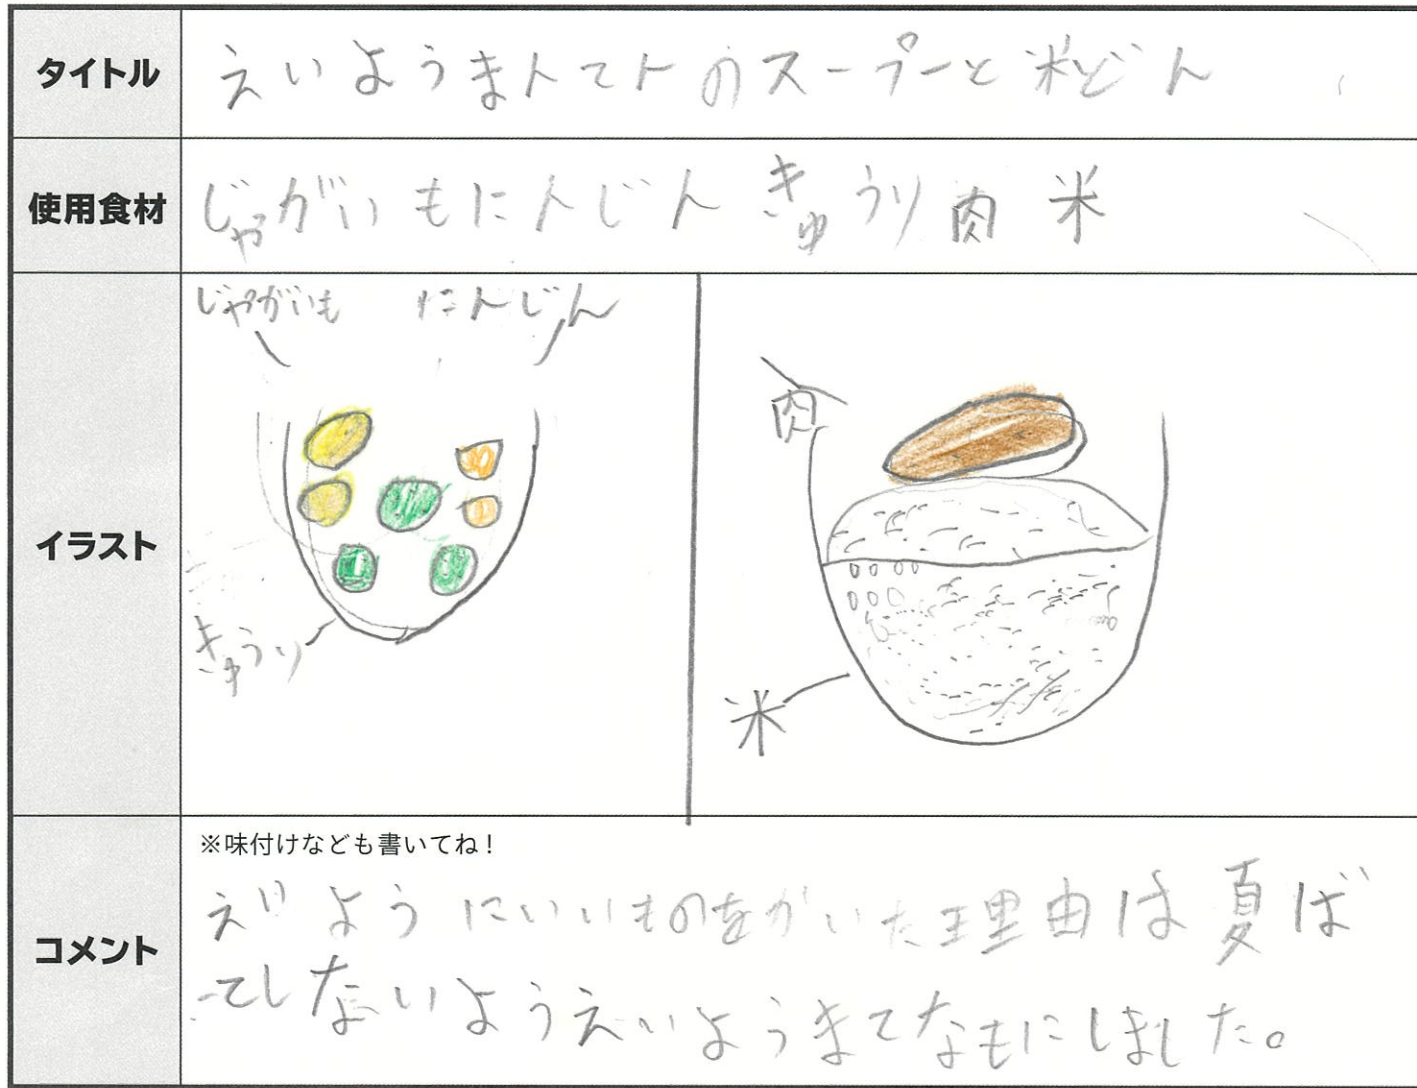 タイトル
えいようまんてんのスープーと米どん
使用食材
じゃがいもにんじんきゅうり肉米
イラスト
じゃがいも にんじん
肉
きゅうり
米
コメント
※味付けなども書いてね！
えいようにいいものをかいた理由は夏ば
てしないようえいようまてなもにしました。